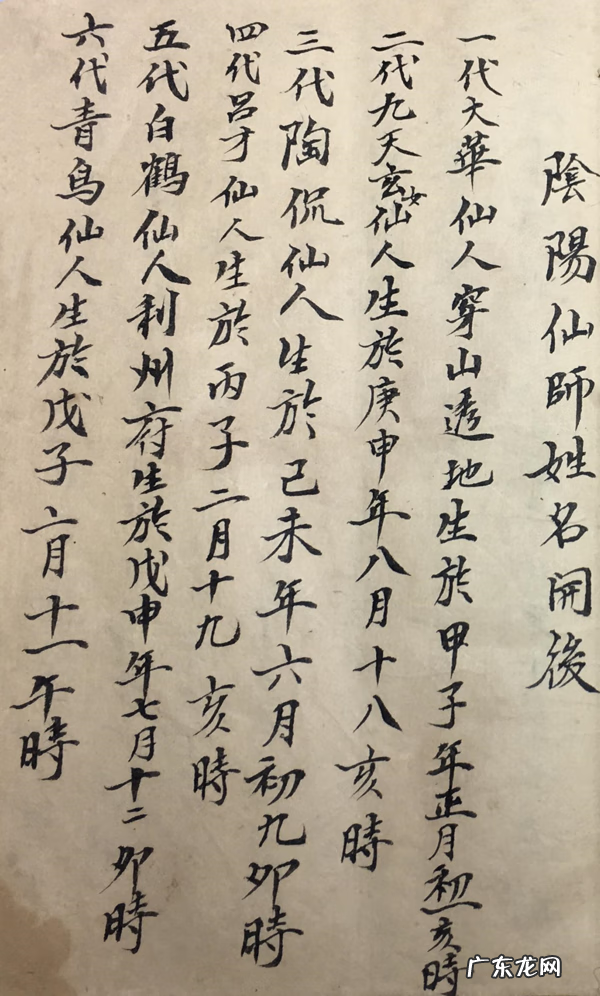 陰陽仙師姓名開後
一代大華仙人穿山透地生於甲子年正月初一亥時
二代九天玄女仙人生於庚申年八月十八亥時
三代陶侃仙人生於己未年六月初九卯時
四代呂才仙人生於丙子二月十九亥時
五代白鶴仙人利州府生於戊申年七月十二卯時
六代青鳥仙人生於戊子六月十一午時
广东龙网